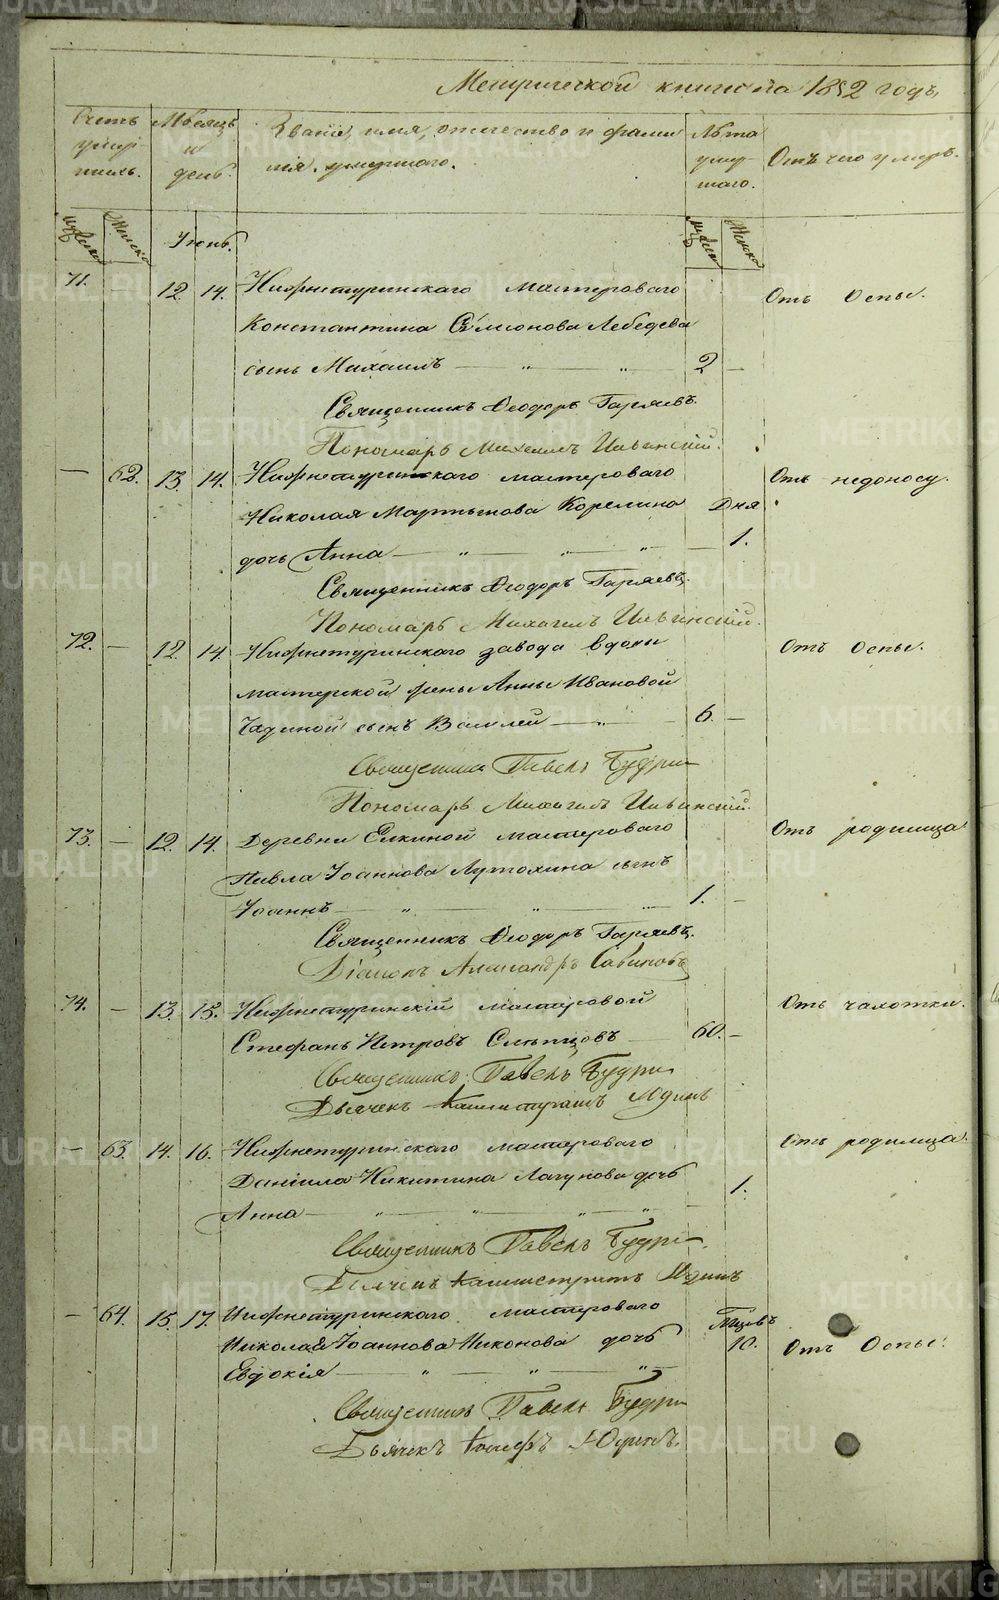 Метрической книги на 1852 годъ,
Счетъ умер-шихъ.
Мѣсяцъ и день.
Званіе, имя, отчество и фами-
лія умершаго.
Лѣта умер-шаго.
Отъ чего умеръ.
мужеска
женска
Іюнь.
мужеск
женска
71. — 12. 14. Нижнетуринскаго мастероваго Отъ Оспы.
Константина Симіонова Лебедева
сынъ Михаилъ — " — " — 2 —
Священникъ Ѳеодоръ Гаряевъ.
Пономарь Михаилъ Ильинскій.
— 62. 13. 14. Нижнетуринскаго мастероваго Отъ недоносу.
Николая Мартынова Корелина Дня
дочь Анна — " — " — " — 1.
Священникъ Ѳеодоръ Гаряевъ.
Пономарь Михаилъ Ильинскій.
72. — 12. 14. Нижнетуринскаго завода вдовы Отъ Оспы.
мастерской жены Анны Ивановой
сынъ Василей — " — 6. —
Священникъ Павелъ Будри
Пономарь Михаилъ Ильинскій.
73. — 12. 14. Деревни Елкиной мастероваго Отъ родимца
Павла Іоаннова Артюхина сынъ
Іоаннъ — " — " — " — 1. —
Священникъ Ѳеодоръ Гаряевъ.
Діаконъ Александръ Савиновъ
74. — 13. 15. Нижнетуринскій мастеровой Отъ чахотки.
Стефанъ Петровъ Слѣпцовъ — 60. —
Священникъ Павелъ Будри
Дьячекъ
— 63. 14. 16. Нижнетуринскаго мастероваго Отъ родимца.
Даніила Никитина Лагунова дочь
Анна — " — " — " — " — 1.
Священникъ Павелъ Будри.
Дьячекъ
— 64. 15. 17. Нижнетуринскаго мастероваго Мцовъ
Николая Іоаннова Никонова дочь 10. Отъ Оспы.
Евдокія — " — " — "
Священникъ Павелъ Будри
Дьячекъ
METRIKI.GASO-URAL.RU